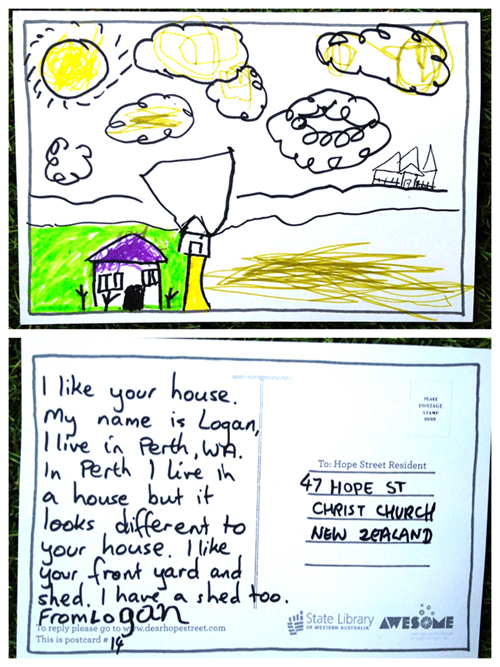 I like your house.
My name is Logan,
I live in Perth, WA.
In Perth I live in
a house but it
looks different to
your house. I like
your front yard and
shed. I have a shed too.
From Logan
To reply please go to www.dearhopestreet.com
This is postcard # 14
PLACE
POSTAGE
STAMP
HERE
To: Hope Street Resident
47 HOPE ST
CHRIST CHURCH
NEW ZEALAND
State Library
OF WESTERN AUSTRALIA
AWESOME